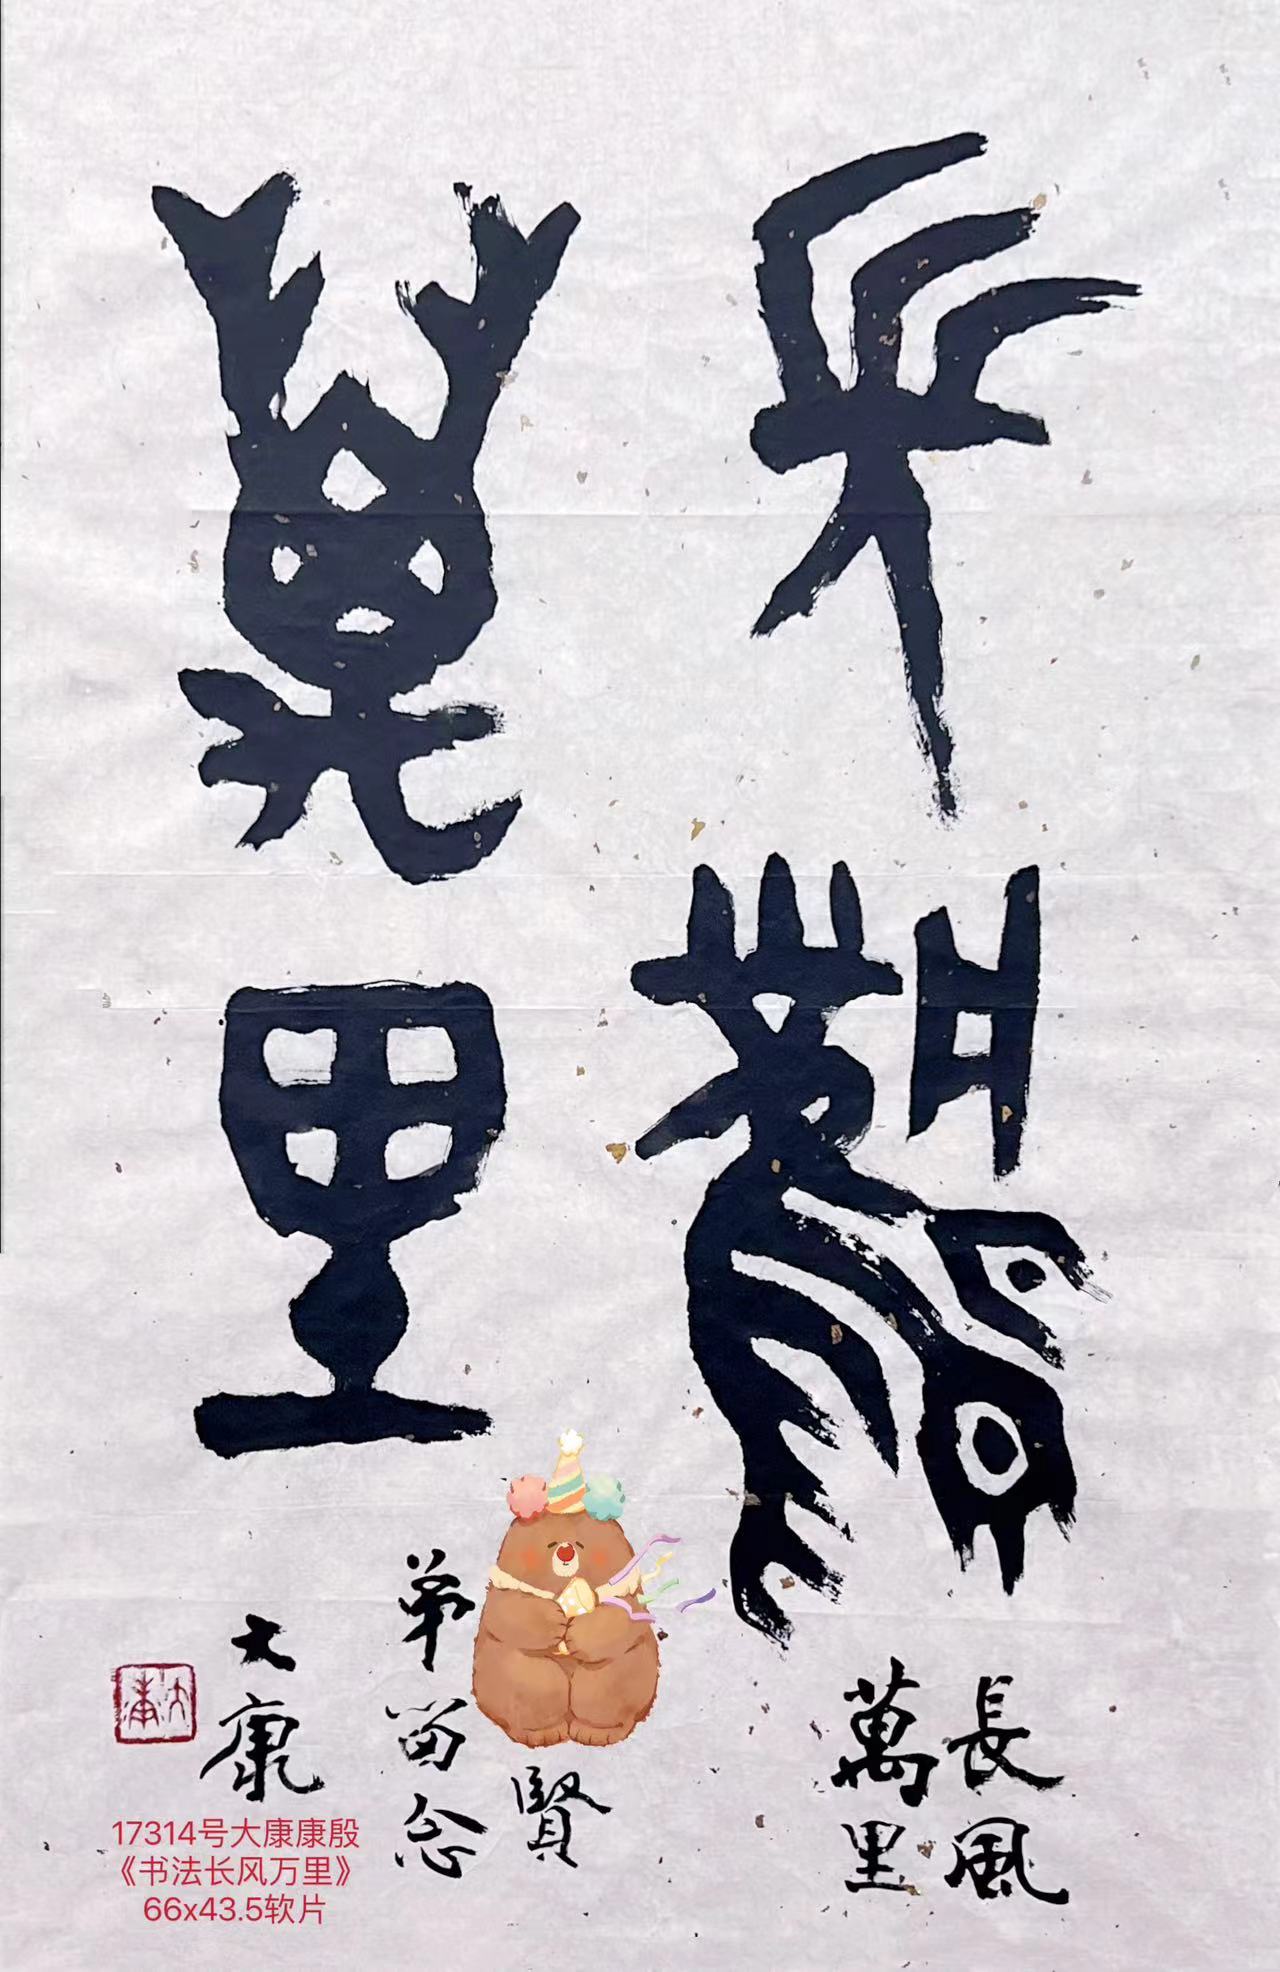 長風
萬里
長風
萬里
賢
弟留念
大康
大康
17314号大康康殷
《书法长风万里》
66x43.5软片